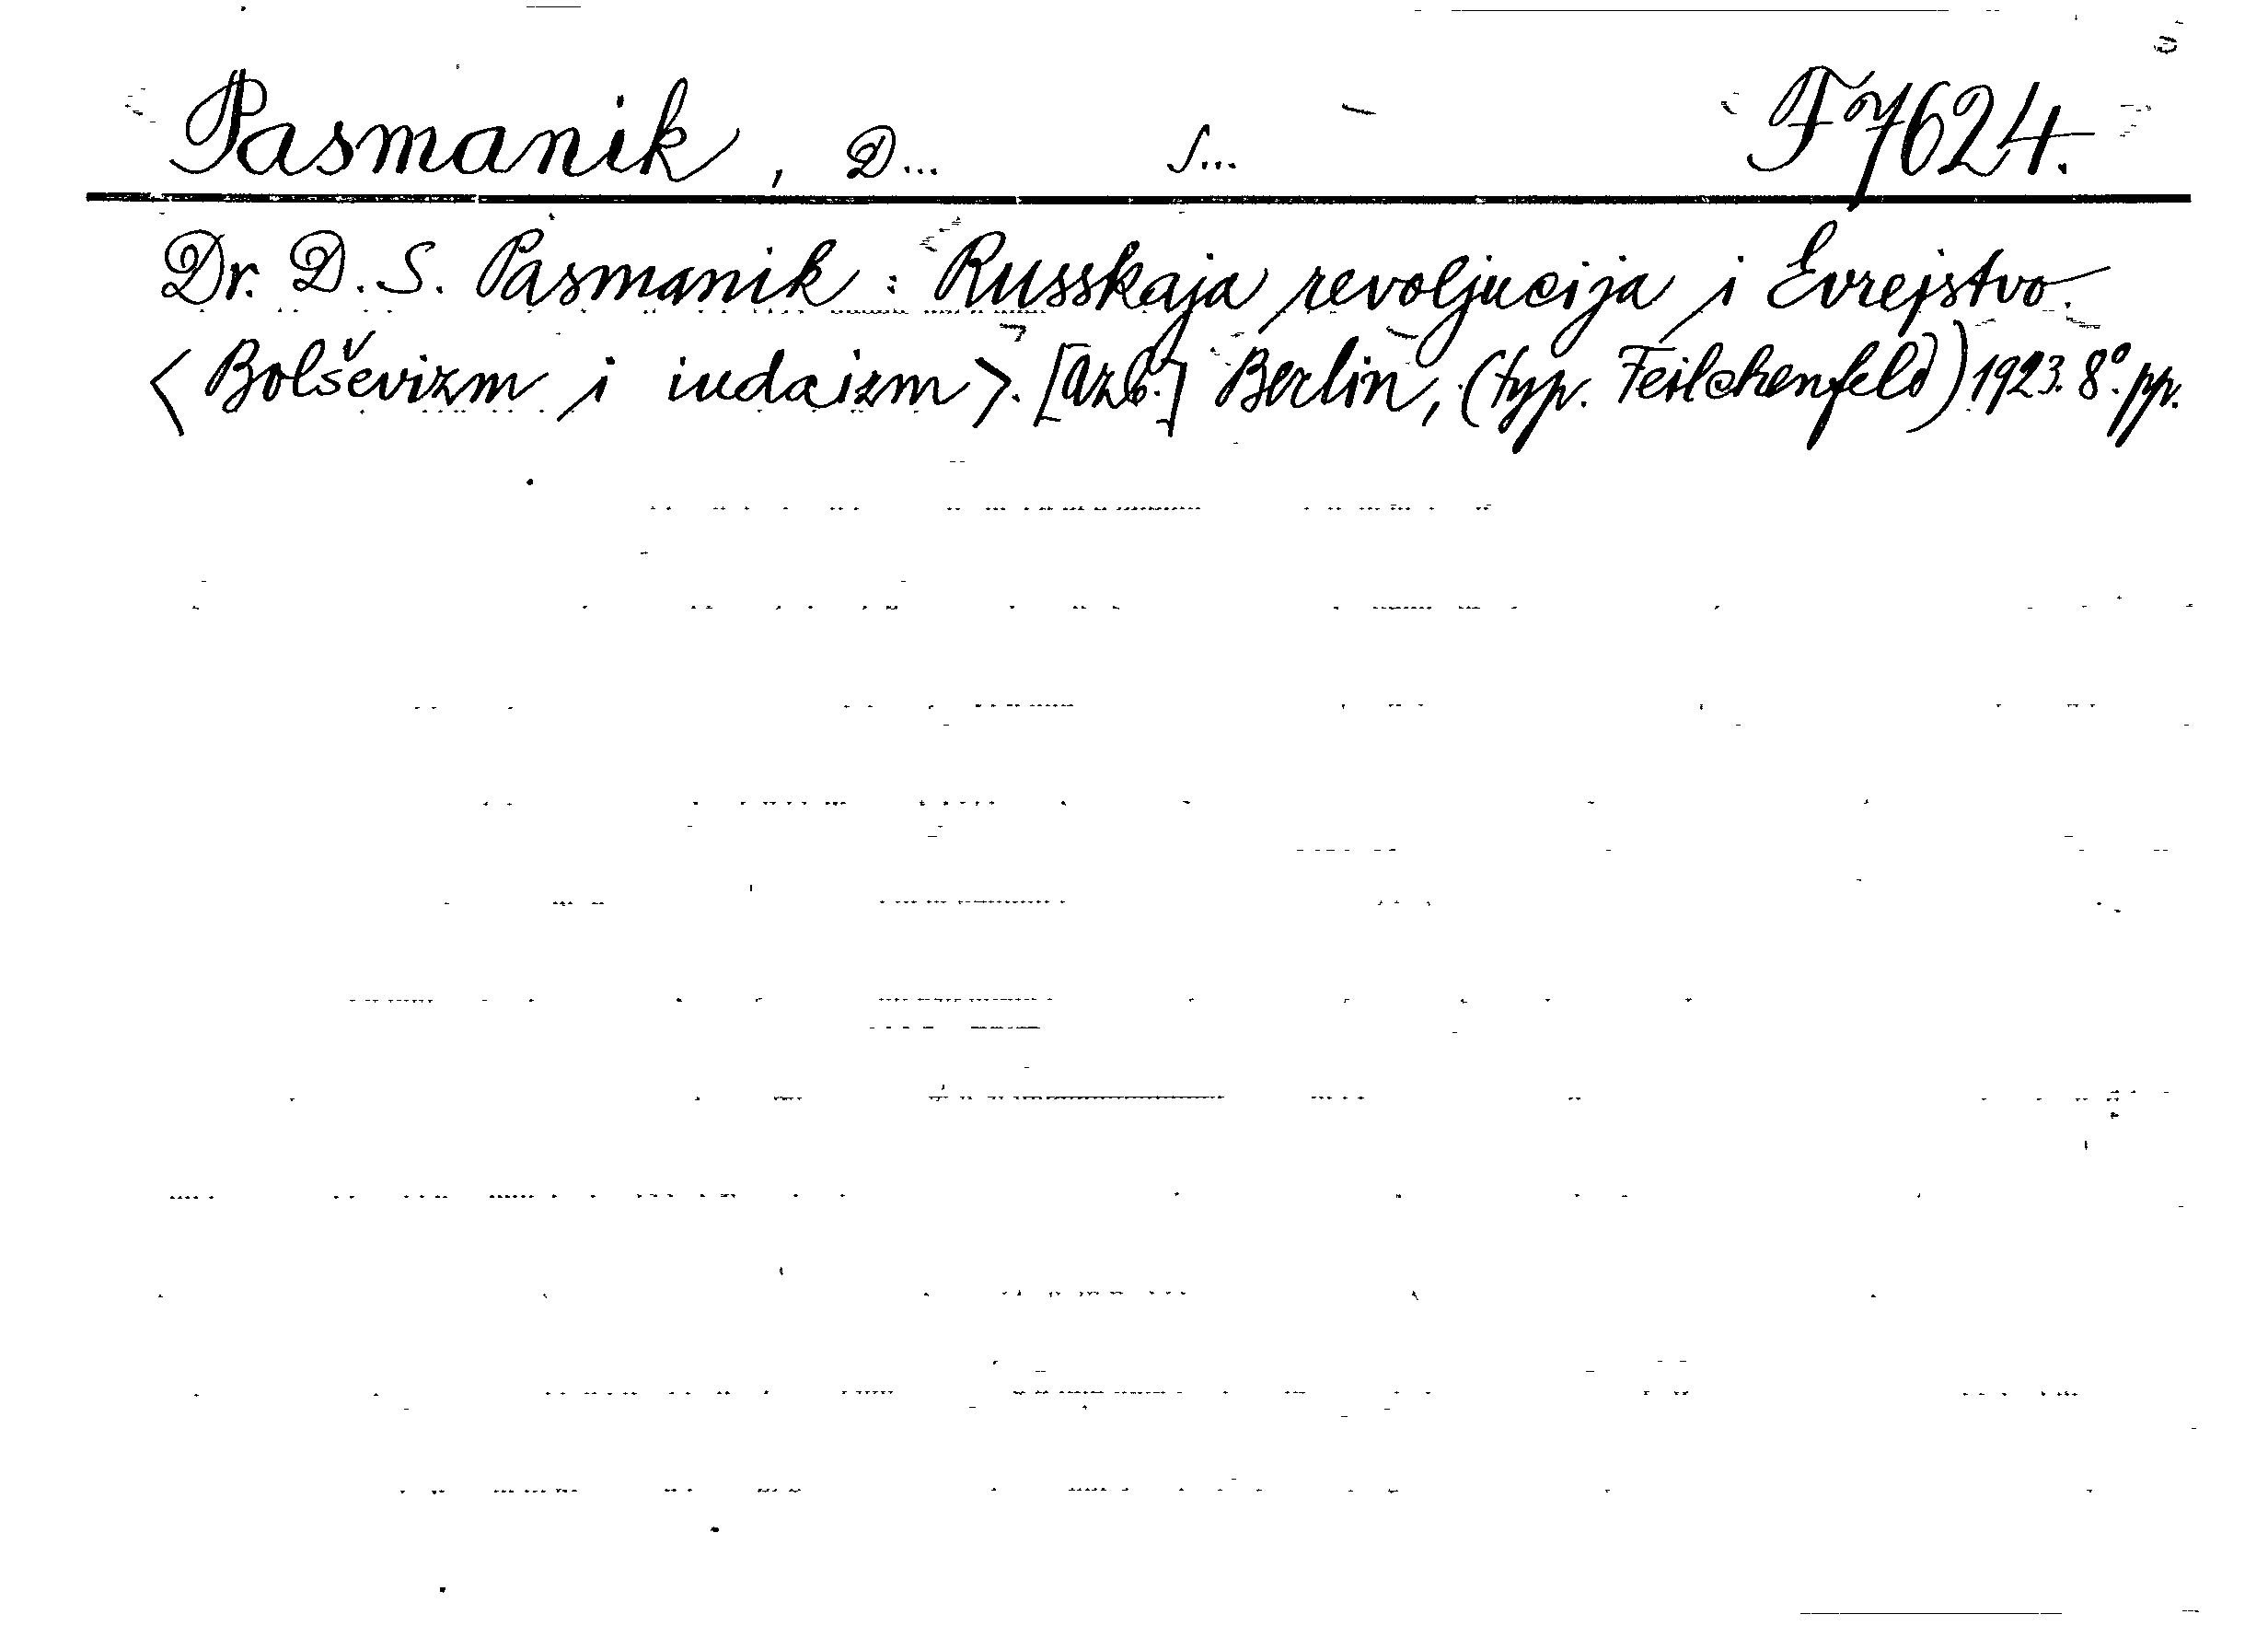 Pasmanik, D... S... F7624.
Dr. D. S. Pasmanik: Russkaja revoljucija i Evrejstvo.
<Bolševizm i iudaizm>. [azb.] Berlin, (typ. Feilchenfeld) 1923. 8°. pp.